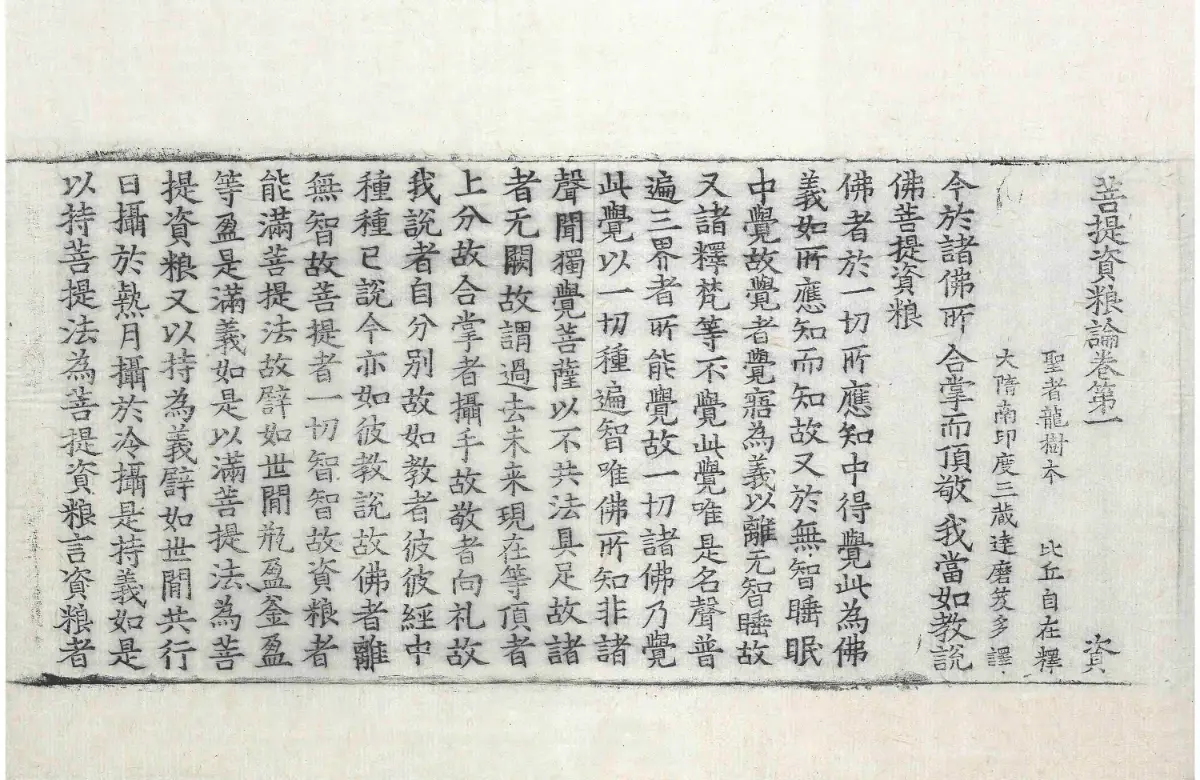 菩提資粮論卷第一 資
聖者龍樹本 比丘自在釋
大隋南印度三藏達磨笈多譯
今於諸佛所 合掌而頂敬 我當如教說
佛菩提資粮
佛者於一切所應知中得覺此為佛
義如所應知而知故又於無智睡眠
中覺故覺者覺寤為義以離无智睡故
又諸釋梵等不覺此覺唯是名聲普
遍三界者所能覺故一切諸佛乃覺
此覺以一切種遍智唯佛所知非諸
聲聞獨覺菩薩以不共法具足故諸
者无闕故謂過去未来現在等頂者
上分故合掌者攝手故敬者向礼故
我說者自分別故如教者彼彼經中
種種已說今亦如彼教說故佛者離
無智故菩提者一切智智故資粮者
能滿菩提法故譬如世閒瓶盈釜盈
等盈是滿義如是以滿菩提法為菩
提資粮又以持為義譬如世閒共行
日攝於熱月攝於冷攝是持義如是
以持菩提法為菩提資粮言資粮者